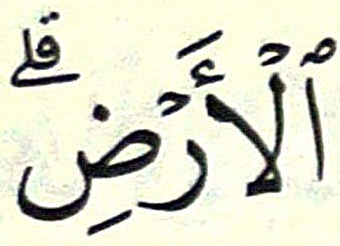 ٱلۡأَرۡضِۗ